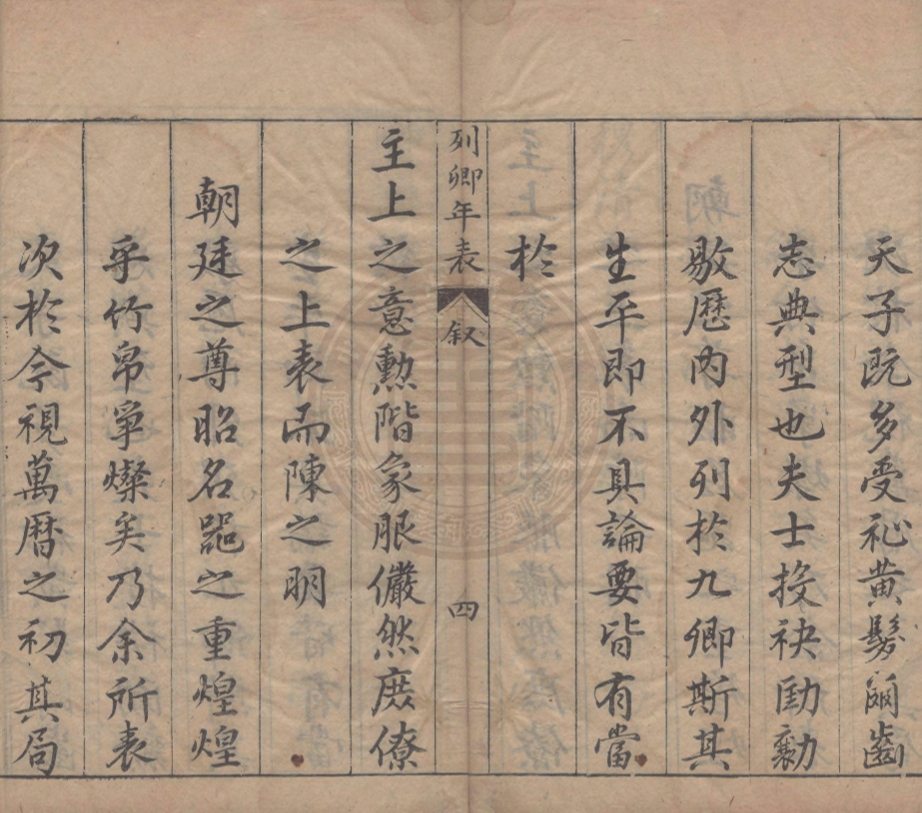 天子既多受祉黄髮兒齒
志典型也夫士投袂勛勷
敭歷內外列於九卿斯其
生平即不具論要皆有當
於
列卿年表 叙 四
主上之意勲階象服儼然庶僚
之上表而陳之明
朝廷之尊昭名噐之重煌煌
乎竹帛爭燦矣乃余所表
次於今視萬曆之初其局